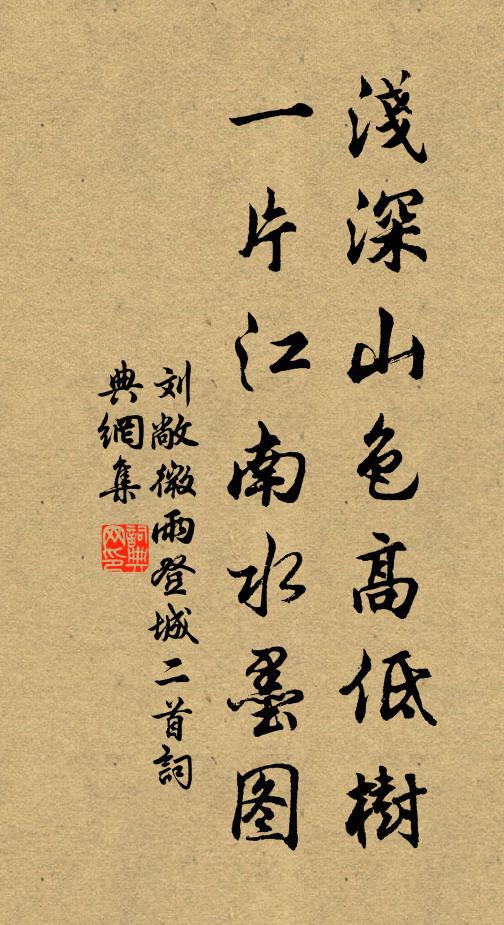 淺深山色高低樹
一片江南水墨图
刘敞微雨登城二首詞
典網集
詞典
网印